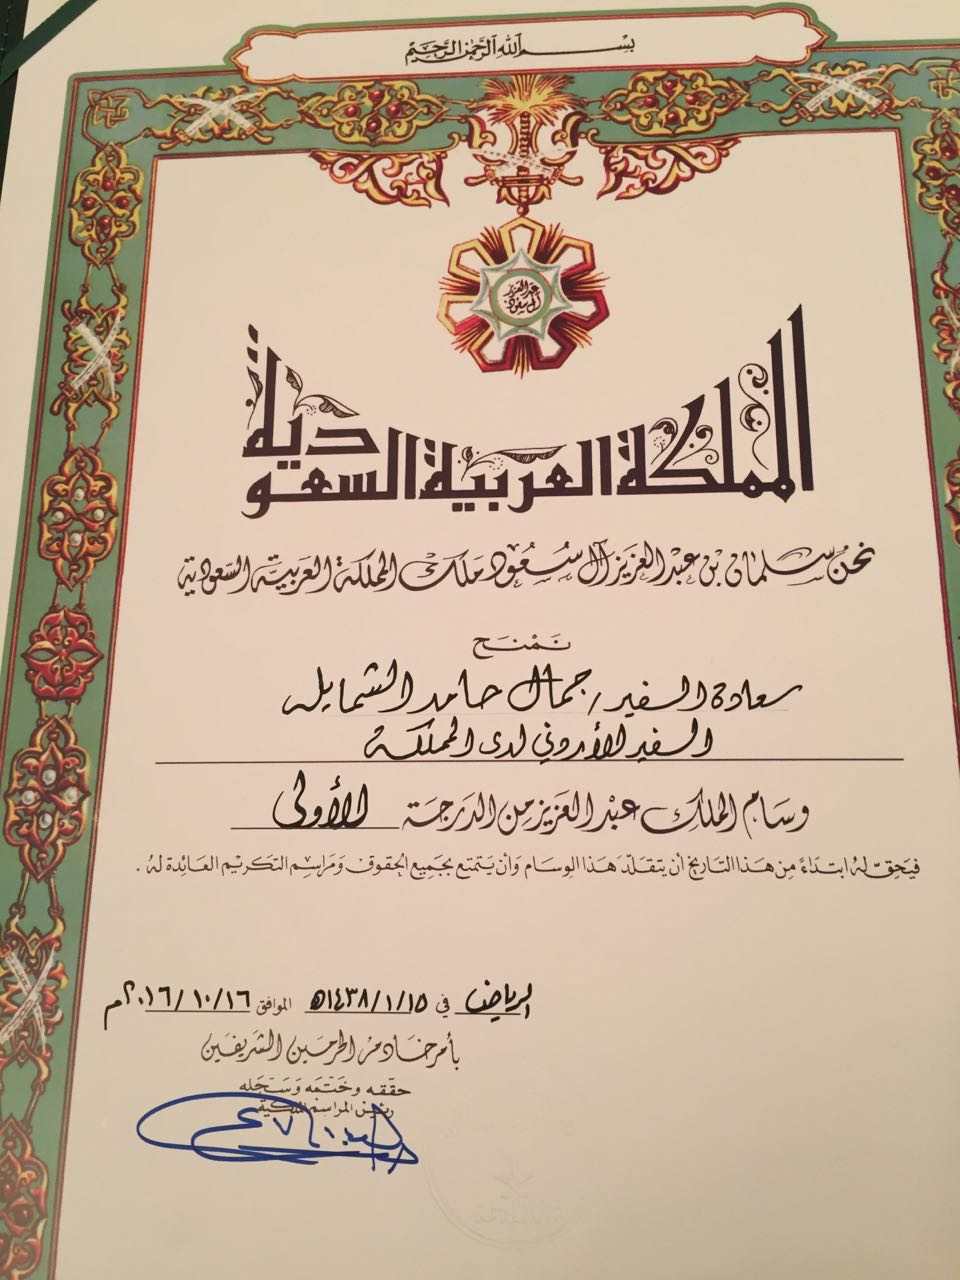 بسم الله الرحمن الرحيم
عبد العزيز
آل سعود
المملكة العربية السعودية
نحن سلمان بن عبد العزيز آل سعود ملك المملكة العربية السعودية
نمنح
سعادة السفير / جمال حامد الشمايله
السفير الأردني لدى المملكة
وسام الملك عبد العزيز من الدرجة الأولى
فيحق له ابتداءً من هذا التاريخ أن يتقلد هذا الوسام وأن يتمتع بجميع الحقوق ومراسم التكريم العائدة له .
الرياض في ١٤٣٨/١/١٥هـ الموافق ٢٠١٦/١٠/١٦م
بأمر خادم الحرمين الشريفين
حققه وختمه وسجله
رئيس المراسم الملكية